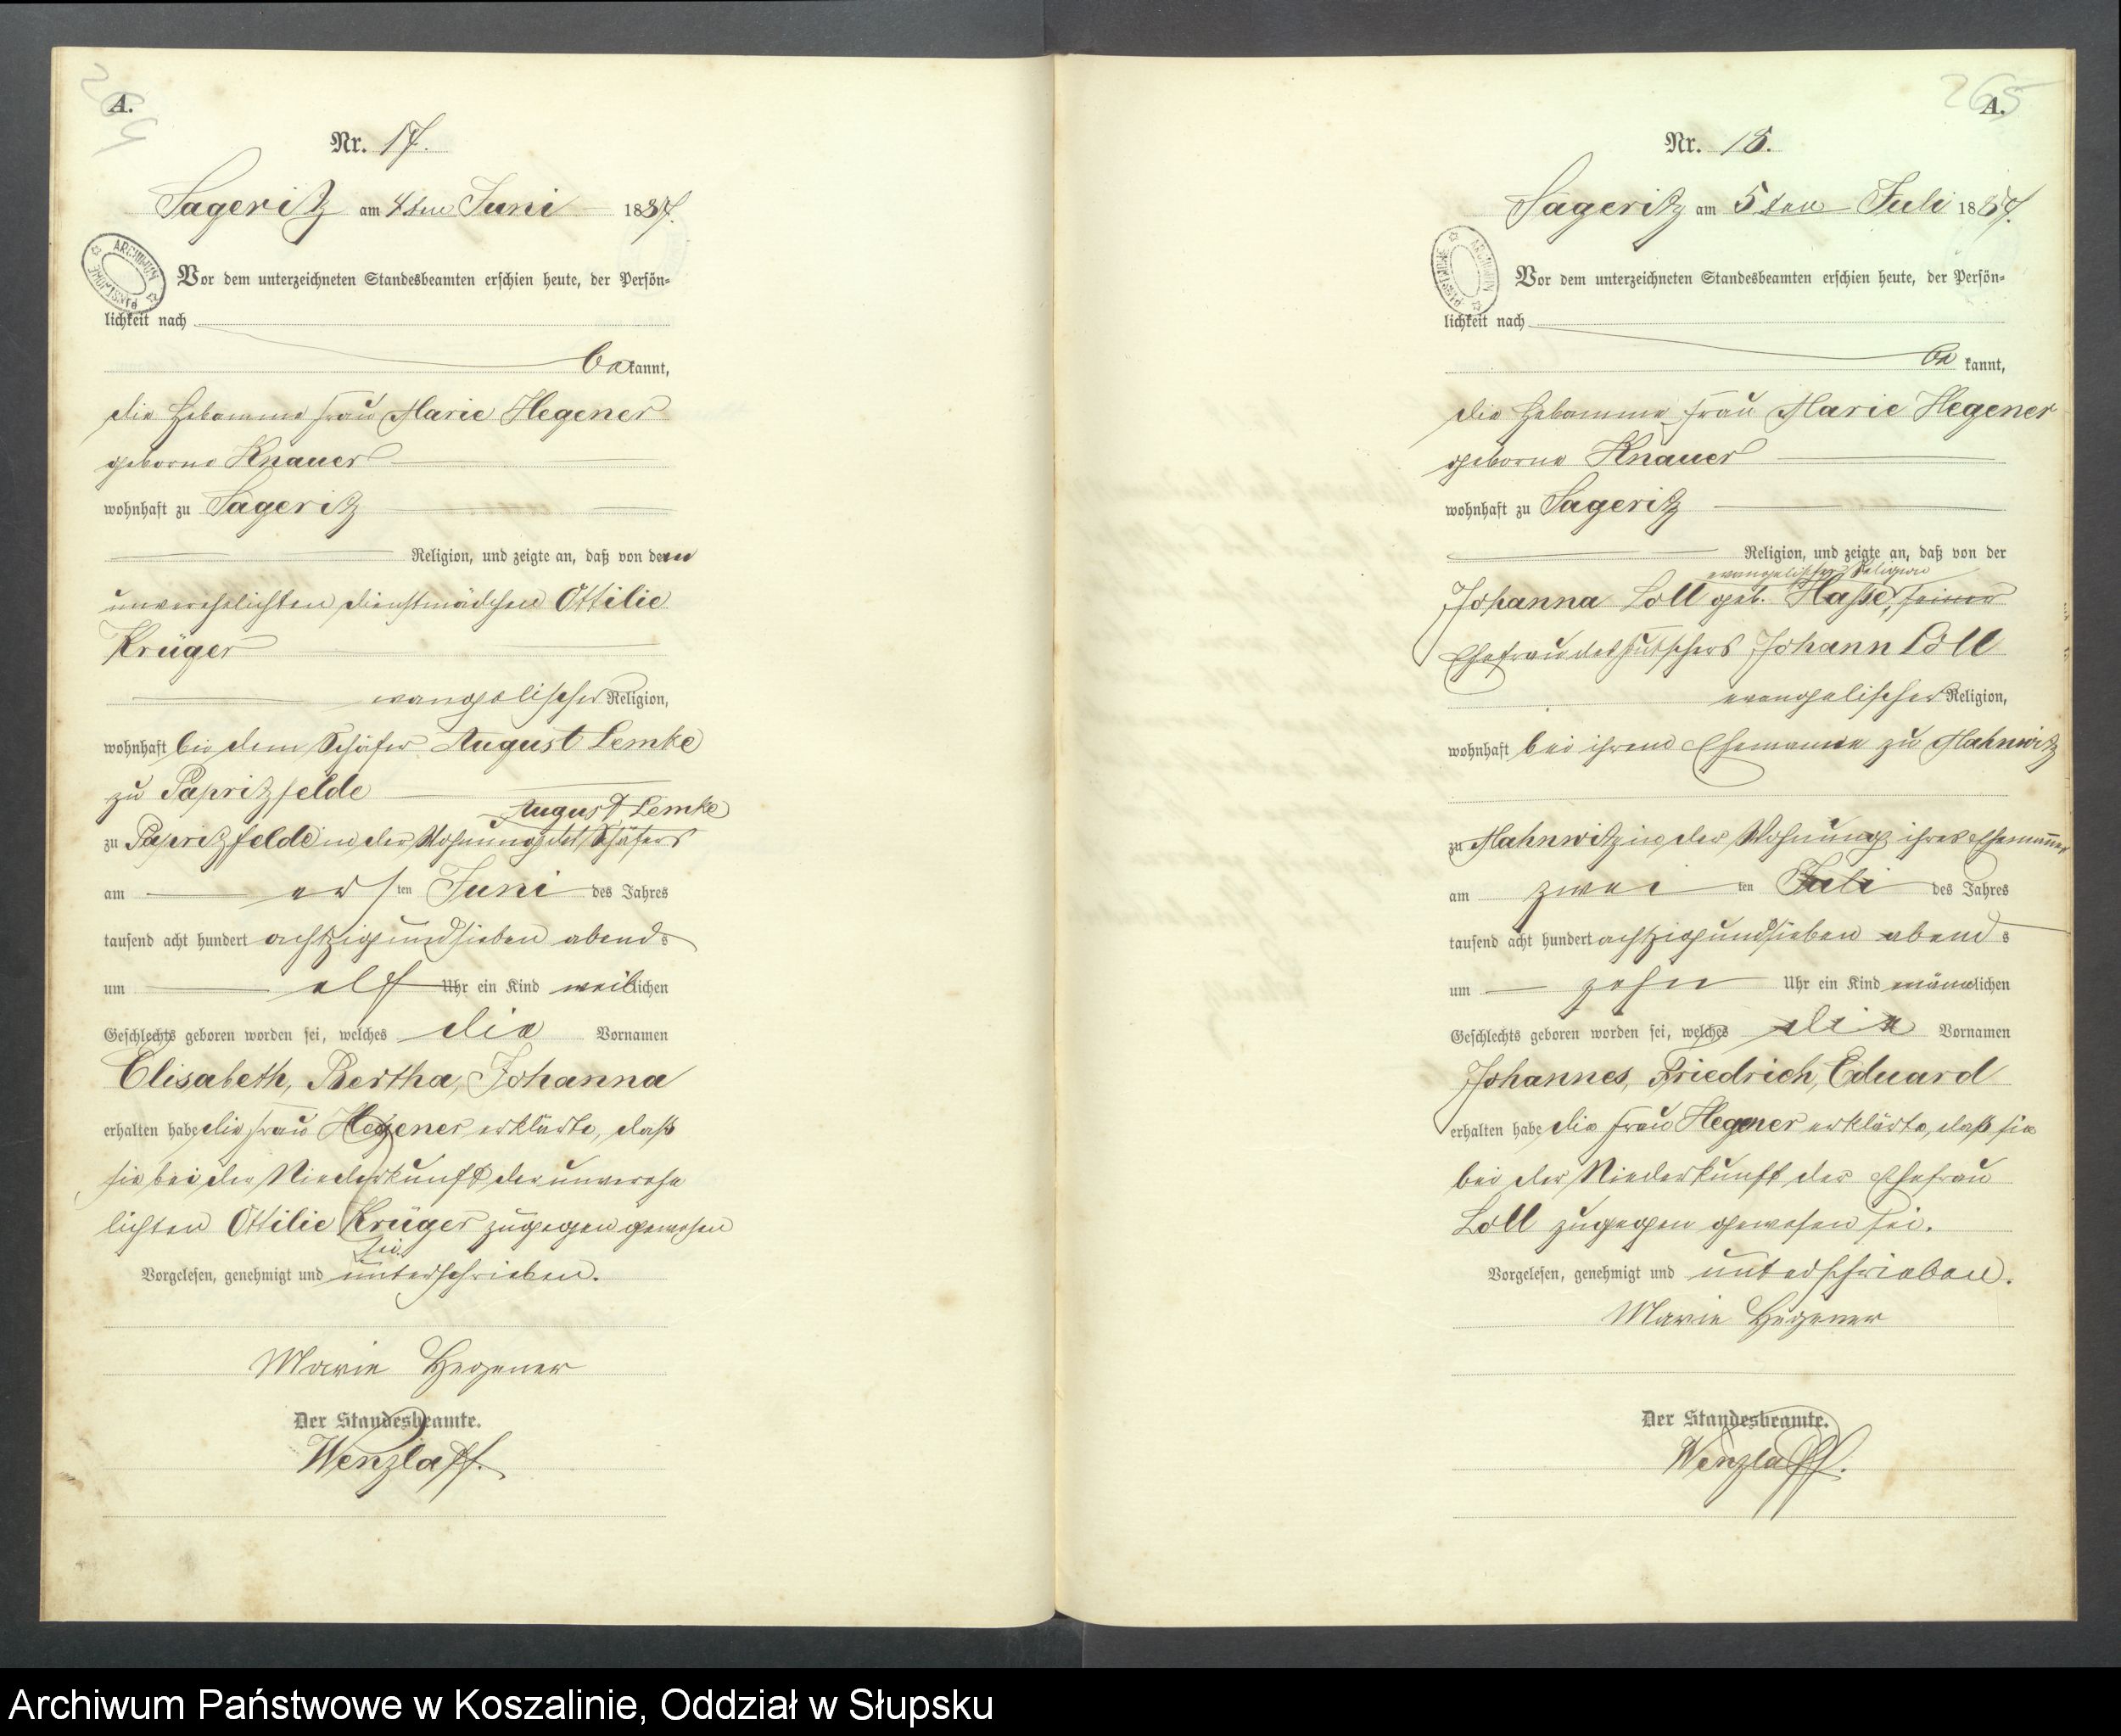 264
A.
Nr. 17.
Sageritz am 4ten Juni 1887.
ARCHIWUM PAŃSTWOWE
Vor dem unterzeichneten Standesbeamten erschien heute, der Persön-
lichkeit nach
bekannt,
die Hebamme Frau Marie Hegener
geborne Knauer
wohnhaft zu Sageritz
Religion, und zeigte an, daß von dem
unverehelichten Dienstmädchen Ottilie
Krüger
evangelischer Religion,
wohnhaft bei dem Schäfer August Lemke
zu Papritzfelde
August Lemke
zu Papritzfelde in der Wohnung des Schäfers
am ersten Juni des Jahres
tausend acht hundert achtzig und sieben abends
um elf Uhr ein Kind weiblichen
Geschlechts geboren worden sei, welches die Vornamen
Elisabeth, Bertha, Johanna
erhalten habe die Frau Hegener erklärte, daß
sie bei der Niederkunft der unverehe
lichten Ottilie Krüger zugegen gewesen
sei.
Vorgelesen, genehmigt und unterschrieben.
Marie Hegener
Der Standesbeamte.
Wenzlaff.
265
A.
Nr. 18.
Sageritz am 5ten Juli 1887.
ARCHIWUM PAŃSTWOWE
Vor dem unterzeichneten Standesbeamten erschien heute, der Persön-
lichkeit nach
bekannt,
die Hebamme Frau Marie Hegener
geborne Knauer
wohnhaft zu Sageritz
Religion, und zeigte an, daß von der
evangelischer Religion
Johanna Loll geb. Hasse, seiner
Ehefrau des Kutschers Johann Loll
evangelischer Religion,
wohnhaft bei ihrem Ehemanne zu Mahnwitz
zu Mahnwitz in der Wohnung ihres Ehemannes
am zweiten Juli des Jahres
tausend acht hundert achtzig und sieben abends
um zehn Uhr ein Kind männlichen
Geschlechts geboren worden sei, welches die Vornamen
Johannes, Friedrich, Eduard
erhalten habe die Frau Hegener erklärte, daß sie
bei der Niederkunft der Ehefrau
Loll zugegen gewesen sei.
Vorgelesen, genehmigt und unterschrieben.
Marie Hegener
Der Standesbeamte.
Wenzlaff.
Archiwum Państwowe w Koszalinie, Oddział w Słupsku